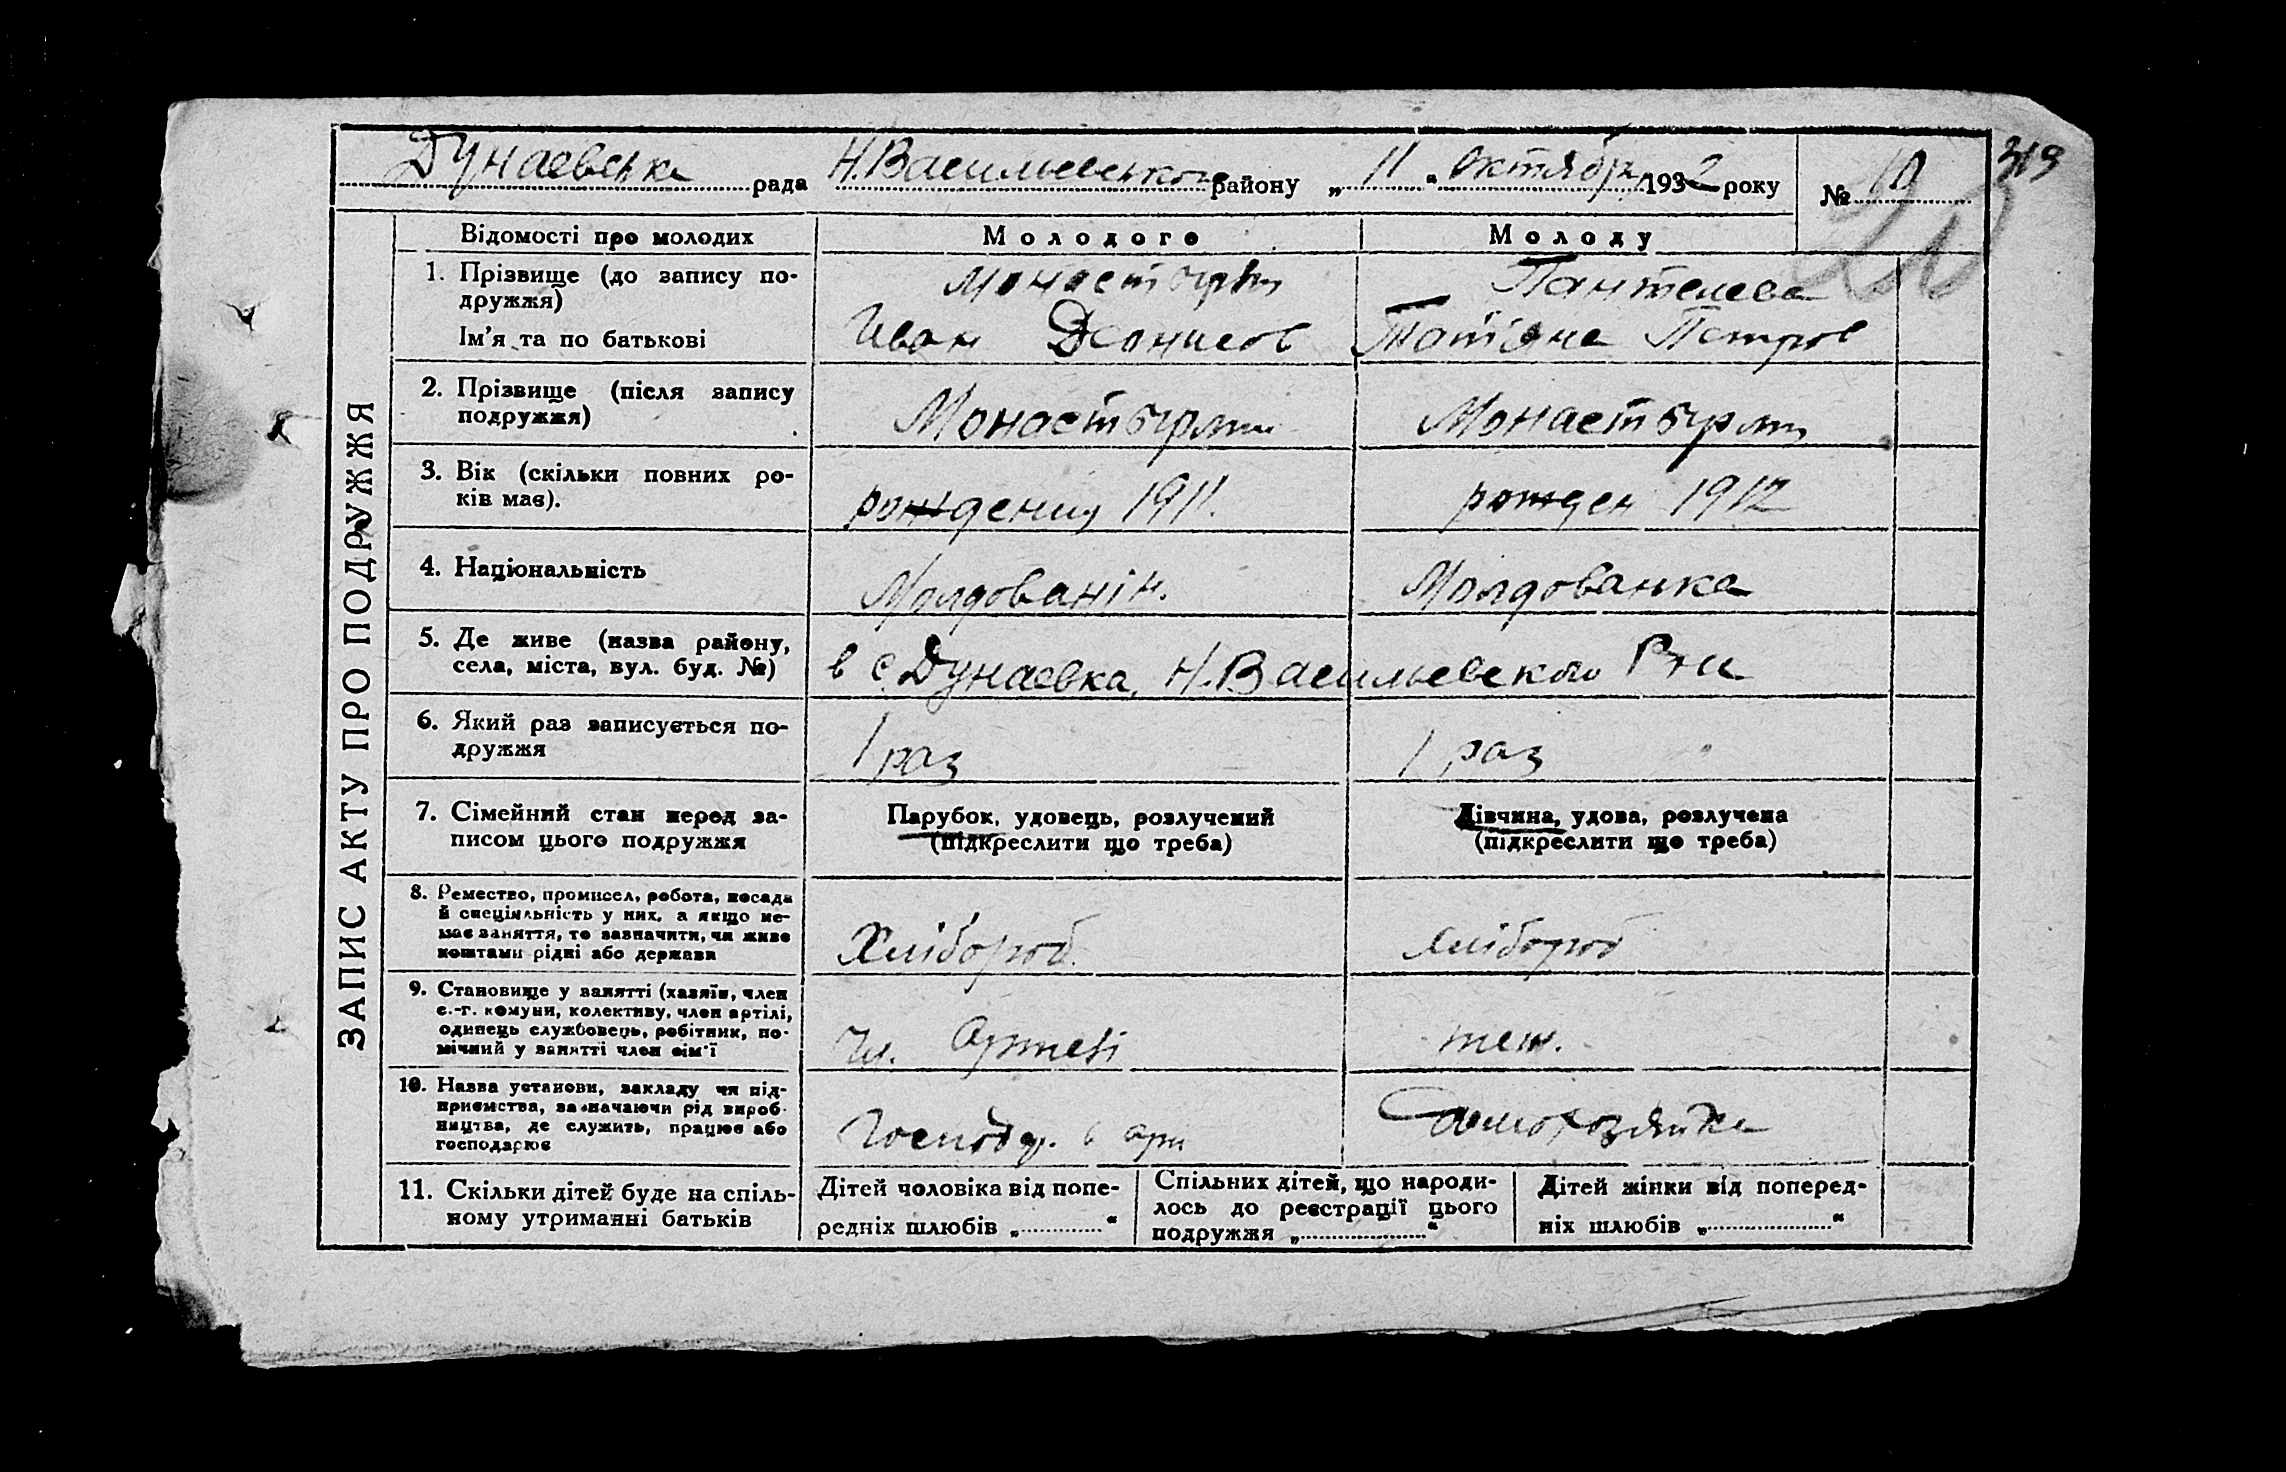 Дунаевська рада Н.Васильевського району „ 11 “ Октября 1932 року № 10 319
20
ЗАПИС АКТУ ПРО ПОДРУЖЖЯ
Відомості про молодих Молодого Молоду
1. Прізвище (до запису по-
дружжя)
Монастырли Пантелеева
Ім’я та по батькові Иван Денисов Татіяна Петров
2. Прізвище (після запису
подружжя)
Монастырли Монастырли
3. Вік (скільки повних ро-
ків має).
рождения 1911. рожден 1912
4. Національність Молдованін. Молдованка
5. Де живе (назва району,
села, міста, вул. буд. №)
в с. Дунаевка, Н.Васильевского Р-на
6. Який раз записується по-
дружжя
1 раз 1 раз
7. Сімейний стан перед за-
писом цього подружжя
Парубок, удовець, розлучений
(підкреслити що треба)
Дівчина, удова, розлучена
(підкреслити що треба)
8. Ремество, промисел, робота, посада
й спеціяльність у них, а якщо не-
має заняття, то зазначити, чи живе
коштами рідні або держави
Хлібороб. хлібороб
9. Становище у занятті (хазяїн, член
с.-г. комуни, колективу, член артілі,
одинець службовець, робітник, по-
мічний у занятті член сім’ї
Чл. Артелі теж.
10. Назва установи, закладу чи під-
приємства, зазначаючи рід вироб-
ництва, де служить, працює або
господарює
Господар. в арт Домохозяйка
11. Скільки дітей буде на спіль-
ному утриманні батьків
Дітей чоловіка від попе-
редніх шлюбів „ “
Спільних дітей, що народи-
лось до реєстрації цього
подружжя „ “
Дітей жінки від поперед-
ніх шлюбів „ “